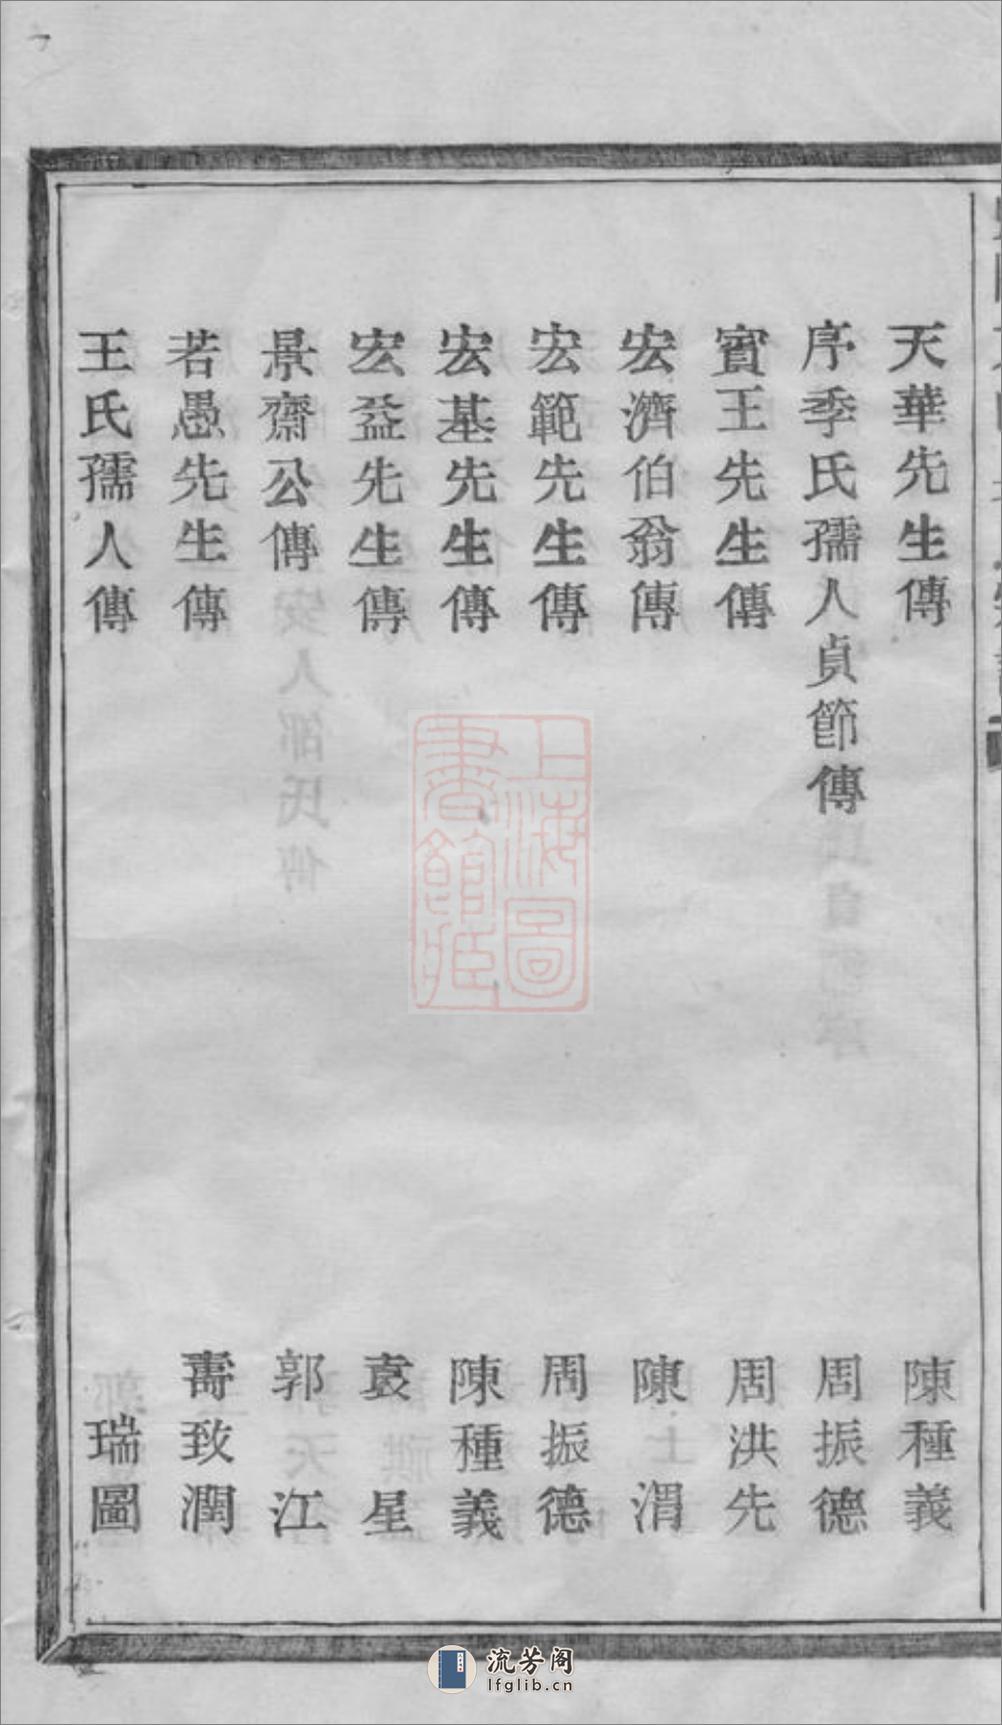 天華先生傳 陳種義
序季氏孺人貞節傳 周振德
賓王先生傳 周洪先
宏濟伯翁傳 陳渭
宏範先生傳 周振德
宏基先生傳 陳種義
宏益先生傳 袁星
景齋公傳 郭天江
若愚先生傳 壽致潤
王氏孺人傳 瑞圖
上海圖書館藏
流芳阁
lfglib.cn